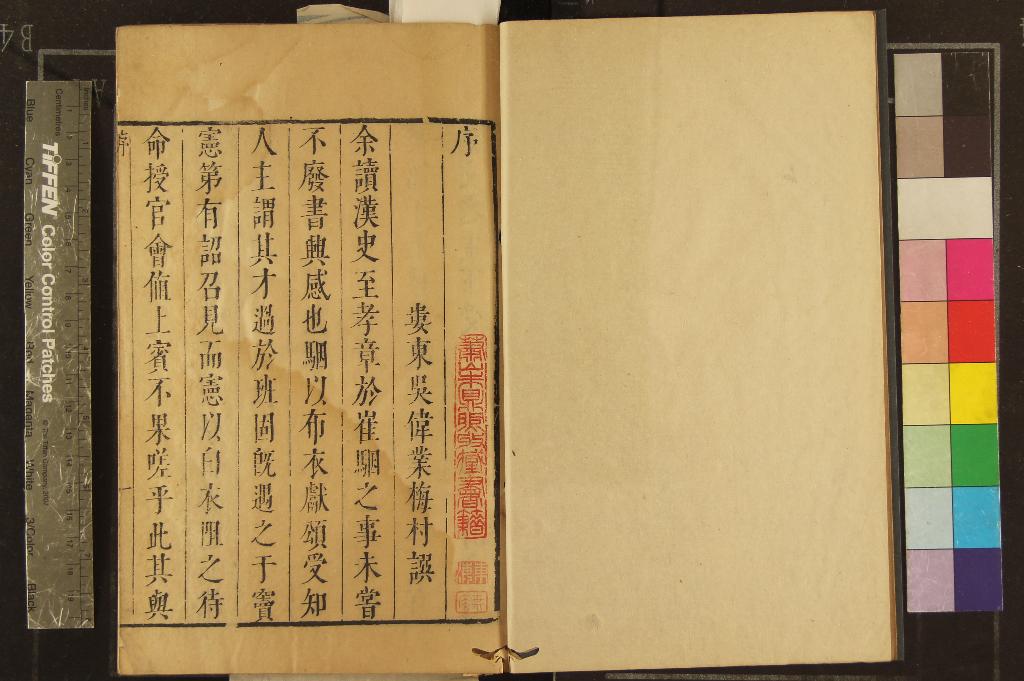 序
婁東吳偉業梅村譔
余讀漢史至孝章於崔駰之事未嘗
不廢書興感也駰以布衣獻頌受知
人主謂其才過於班固旣遇之于竇
憲第有詔召見而憲以白衣阻之待
命授官會值上賓不果嗟乎此其與
序
TIFFEN Color Control Patches
Centimetres
Inches
Blue
Cyan
Green
Yellow
Red
Magenta
White
3/Color
Black
B4